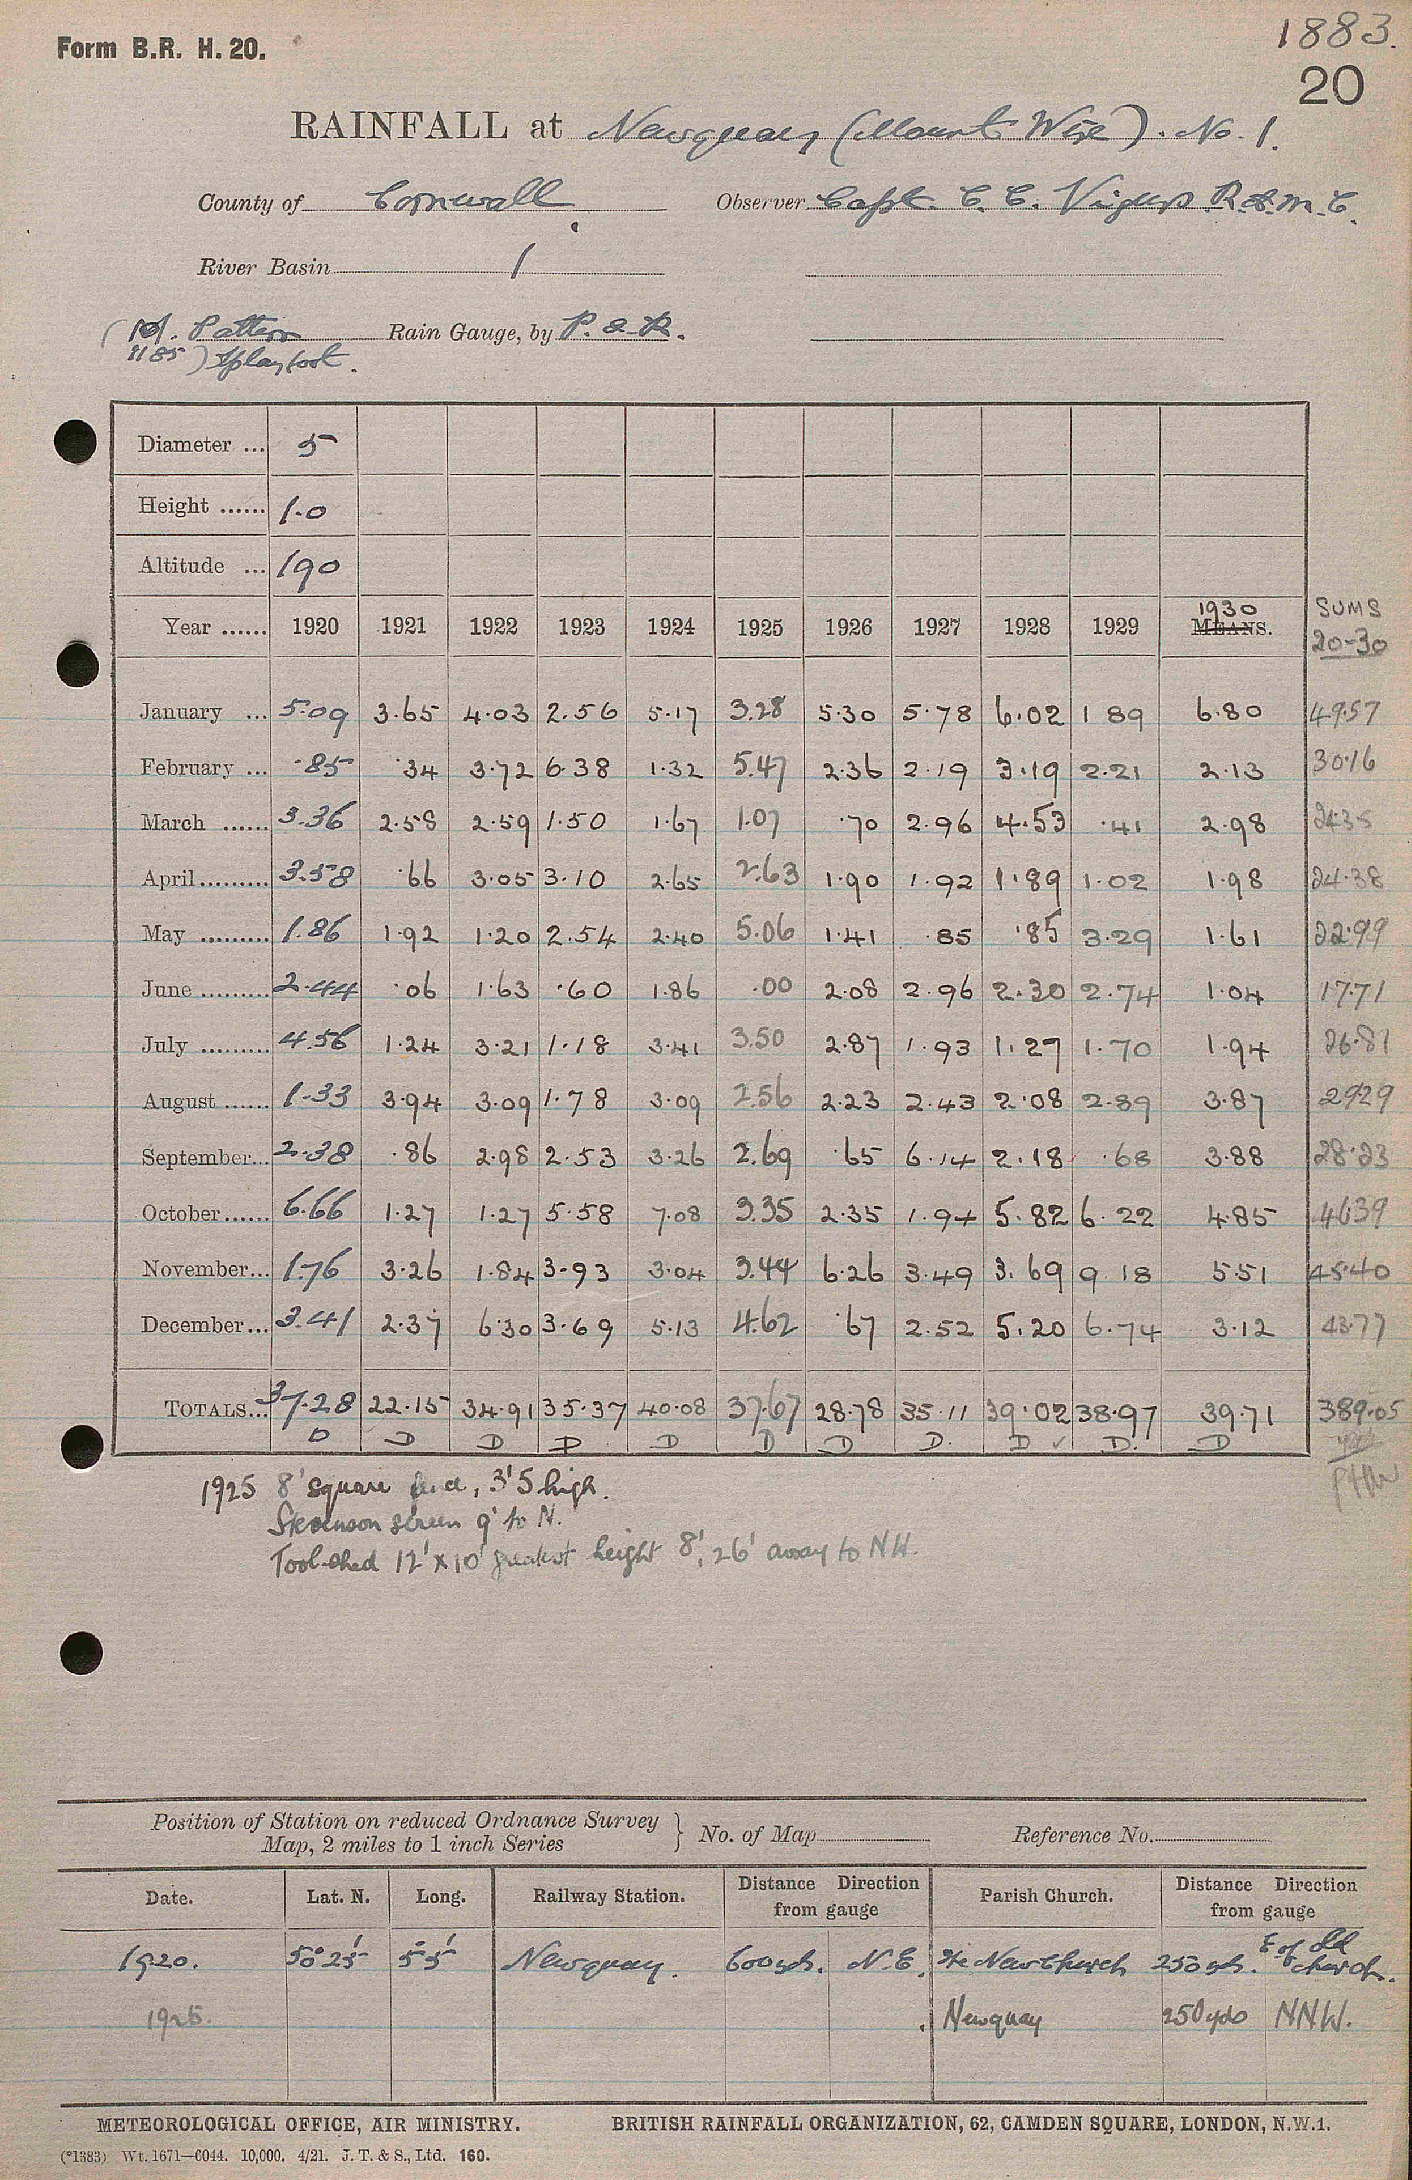 Form B.R. H. 20.
1883.
20
RAINFALL at Newquay (Mount Wise). No. 1.
County of Cornwall. Observer Capt. C. C. Vigurs R.A.M.C.
River Basin 1
(M. Pattern Rain Gauge, by P. & R.
1185) Splayfoot.
Diameter ... 5
Height ...... 1.0
Altitude ... 190
Year ...... 1920 1921 1922 1923 1924 1925 1926 1927 1928 1929 1930 MEANS. SUMS 20-30
January ... 5.09 3.65 4.03 2.56 5.17 3.28 5.30 5.78 6.02 1 89 6.80 49.57
February ... .85 .34 3.72 6.38 1.32 5.47 2.36 2.19 3.19 2.21 2.13 30.16
March ...... 3.36 2.58 2.59 1.50 1.67 1.07 .70 2.96 4.53 .41 2.98 24.35
April ......... 3.58 .66 3.05 3.10 2.65 2.63 1.90 1.92 1.89 1.02 1.98 24.38
May ......... 1.86 1.92 1.20 2.54 2.40 5.06 1.41 .85 .85 3.29 1.61 22.99
June ......... 2.44 .06 1.63 .60 1.86 .00 2.08 2.96 2.30 2.74 1.04 17.71
July ......... 4.56 1.24 3.21 1.18 3.41 3.50 2.87 1.93 1.27 1.70 1.94 26.81
August ...... 1.33 3.94 3.09 1.78 3.09 2.56 2.23 2.43 2.08 2.89 3.87 29.29
September... 2.38 .86 2.98 2.53 3.26 2.69 .65 6.14 2.18 .68 3.88 28.23
October...... 6.66 1.27 1.27 5.58 7.08 3.35 2.35 1.94 5.82 6.22 4.85 46.39
November... 1.76 3.26 1.84 3.93 3.04 3.44 6.26 3.49 3.69 9 18 5.51 45.40
December... 3.41 2.37 6.30 3.69 5.13 4.62 .67 2.52 5.20 6.74 3.12 43.77
TOTALS... 37.28 22.15 34.91 35.37 40.08 37.67 28.78 35.11 39.02 38.97 39.71 389.05
D D D D D D D D. D ✓ D. D
1925 8' square fence, 3'5 high.
Stevenson screen 9' to N.
Tool-shed 12' x 10' greatest height 8', 26' away to NW.
Position of Station on reduced Ordnance Survey
Map, 2 miles to 1 inch Series } No. of Map Reference No.
Date. Lat. N. Long. Railway Station. Distance Direction from gauge Parish Church. Distance Direction from gauge
1920. 50°25' 5°5' Newquay. 600 yds. N.E. The New Church 250 yds. E of Old Church.
1925. Newquay 250 yds NNW.
METEOROLOGICAL OFFICE, AIR MINISTRY. BRITISH RAINFALL ORGANIZATION, 62, CAMDEN SQUARE, LONDON, N.W.1.
(*1383) Wt. 1671—6044. 10,000. 4/21. J. T. & S., Ltd. 160.